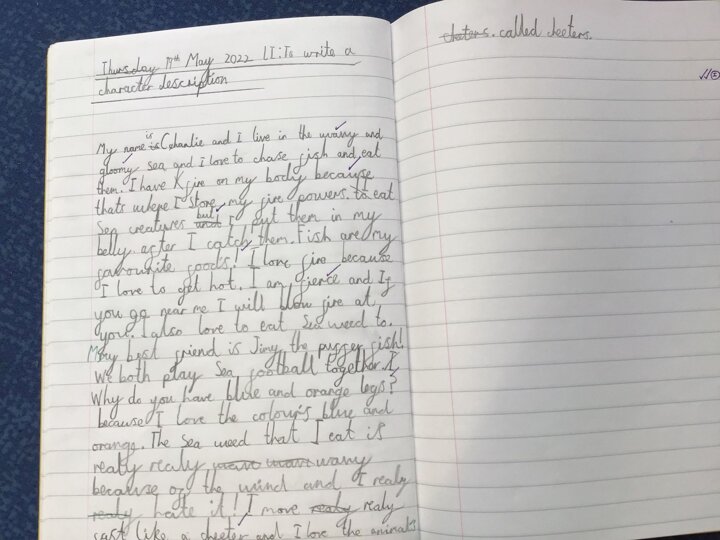 Thursday 19th May 2022 LI: To write a
character description
My name is Charlie and I live in the wavy and
gloomy sea and I love to chase fish and eat
them. I have fire on my body because
thats where I store my fire powers. to eat
Sea creatures but I put them in my
belly after I catch them. Fish are my
favourite foods! I love fire because
I love to get hot. I am fierce and If
you go near me I will blow fire at
you. I also love to eat Sea weed to.
My best friend is Jimy the puffer fish!
We both play Sea football together.
Why do you have blue and orange legs?
because I love the colour's blue and
orange. The Sea weed that I eat is
realy realy wavy
because of the wind and I realy
realy hate it! I move realy realy
fast like a cheeter and I love the animals
cheters. called cheeters.